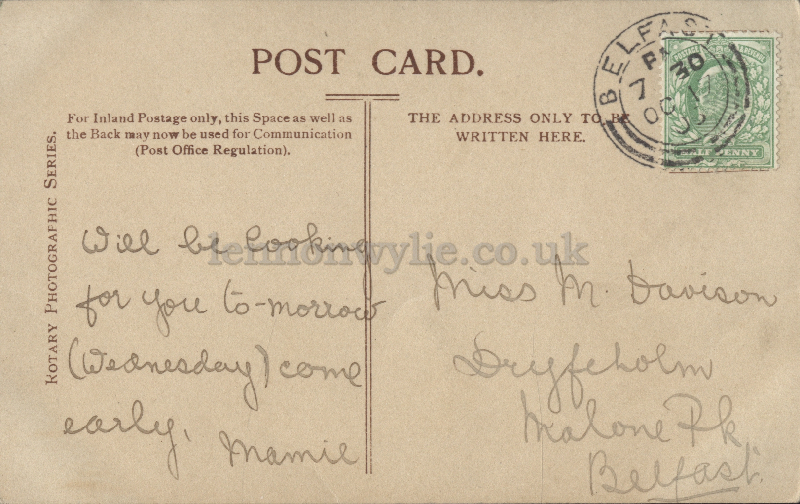 POST CARD.
For Inland Postage only, this Space as well as
the Back may now be used for Communication
(Post Office Regulation).
THE ADDRESS ONLY TO BE
WRITTEN HERE.
ROTARY PHOTOGRAPHIC SERIES.
BELFAST
PM
7 30
OC 17
HALF PENNY
lennonwylie.co.uk
Will be looking
for you to-morrow
(Wednesday) come
early.
Mamie
Miss M. Davison
Dryfeholm
Malone Pk
Belfast.